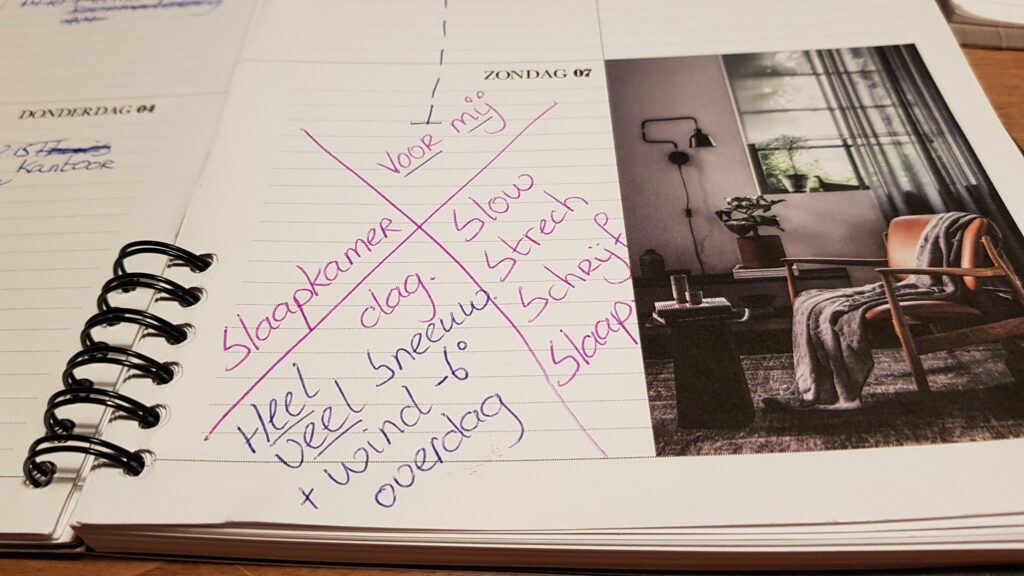 DONDERDAG 04
Kantoor
ZONDAG 07
Voor mij
Slaapkamer
dag.
Slow
Strech
Schrijf
Slaap
Heel
veel Sneeuw.
+ wind -6°
overdag